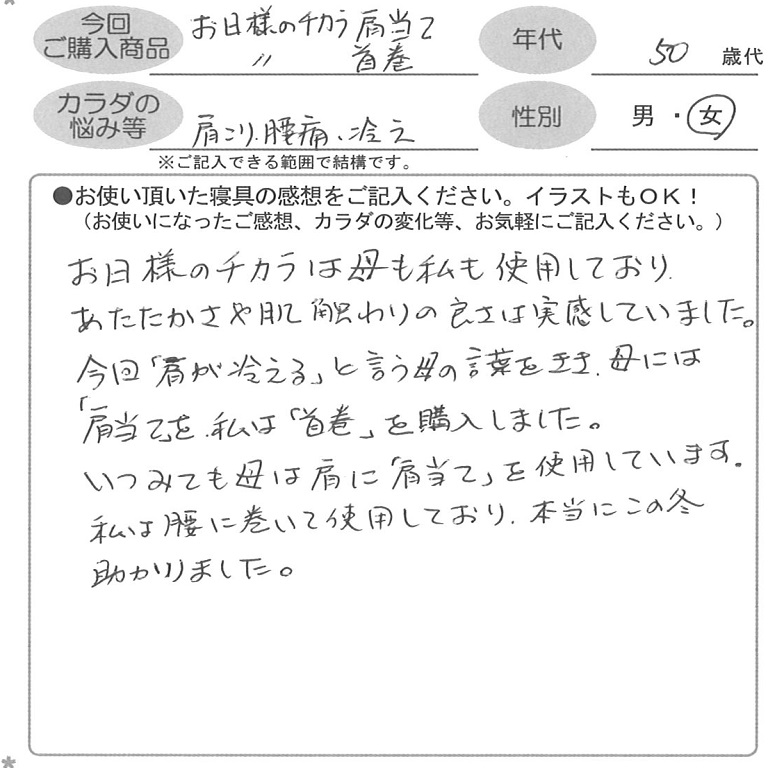 今回
ご購入商品
お日様のチカラ 肩当て
〃 首巻
年代
50 歳代
カラダの
悩み等
肩こり、腰痛、冷え
性別
男・女
※ご記入できる範囲で結構です。
●お使い頂いた寝具の感想をご記入ください。イラストもOK!
(お使いになったご感想、カラダの変化等、お気軽にご記入ください。)
お日様のチカラは母も私も使用しており、
あたたかさや肌触わりの良さは実感していました。
今回「肩が冷える」と言う母の言葉をきき、母には
「肩当て」を、私は「首巻」を購入しました。
いつみても母は肩に「肩当て」を使用しています。
私は腰に巻いて使用しており、本当にこの冬
助かりました。